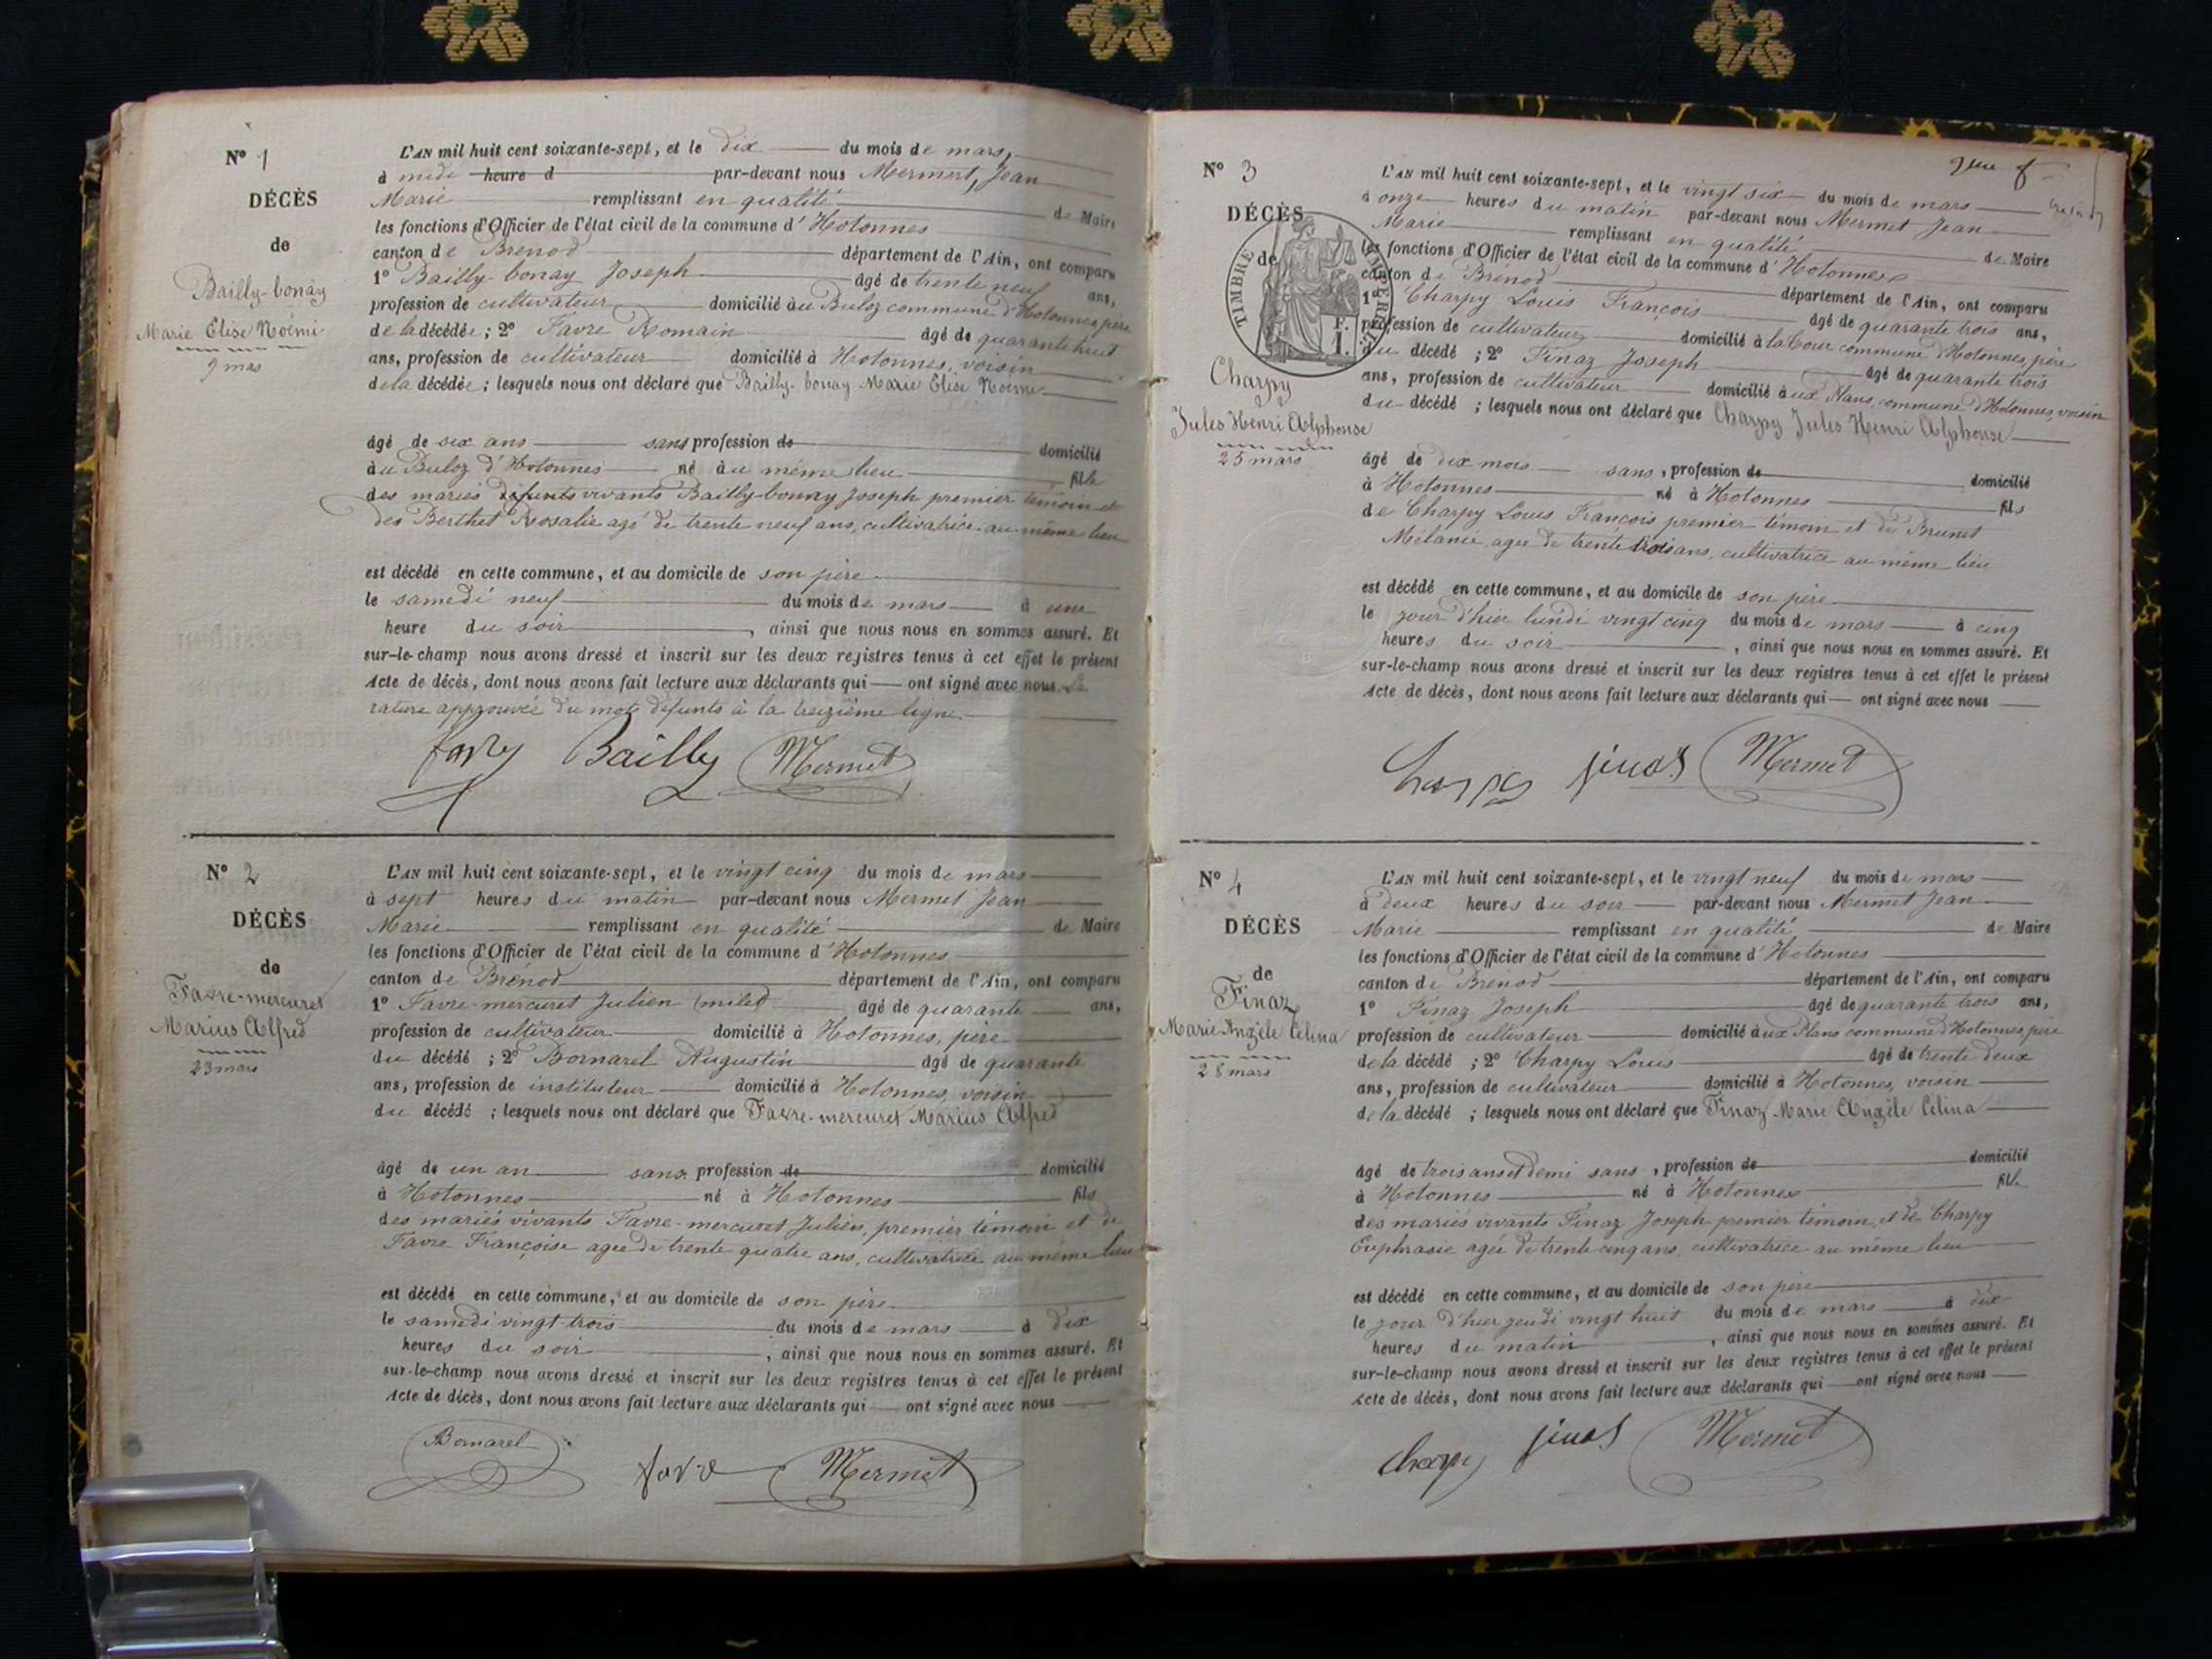 N° 1
DÉCÈS
de
Bailly-bonay
Marie Elise Noémi
9 mars
L'AN mil huit cent soixante-sept, et le dix du mois de mars,
à midi heure d par-devant nous Mermet, Jean
Marie remplissant en qualité de Maire
les fonctions d'Officier de l'état civil de la commune d'Hotonnes
canton de Brénod département de l'Ain, ont comparu
1° Bailly-bonay Joseph âgé de trente neuf ans,
profession de cultivateur domicilié au Buloz commune d'Hotonnes, père
de la décédée ; 2° Favre Romain âgé de quarante huit
ans, profession de cultivateur domicilié à Hotonnes, voisin
de la décédée ; lesquels nous ont déclaré que Bailly-bonay Marie Elise Noémi
âgé de six ans sans profession de domicilié
au Buloz d'Hotonnes né au même lieu fille
des mariés défunts vivants Bailly-bonay Joseph premier témoin et
des Berthet Rosalie agé de trente neuf ans, cultivatrice au même lieu
est décédé en cette commune, et au domicile de son père
le samedi neuf du mois de mars à une
heure du soir, ainsi que nous nous en sommes assuré. Et
sur-le-champ nous avons dressé et inscrit sur les deux registres tenus à cet effet le présent
Acte de décès, dont nous avons fait lecture aux déclarants qui ont signé avec nous. La
rature approuvée du mots défunts à la treizième ligne.
favre Bailly Mermet
N° 2
DÉCÈS
de
Favre-mercuret
Marius Alfred
23 mars
L'AN mil huit cent soixante-sept, et le vingt cinq du mois de mars
à sept heures du matin par-devant nous Mermet Jean
Marie remplissant en qualité de Maire
les fonctions d'Officier de l'état civil de la commune d'Hotonnes
canton de Brénod département de l'Ain, ont comparu
1° Favre-mercuret Julien âgé de quarante ans,
profession de cultivateur domicilié à Hotonnes, père
du décédé ; 2° Bornarel Augustin âgé de quarante
ans, profession de instituteur domicilié à Hotonnes, voisin
du décédé ; lesquels nous ont déclaré que Favre-mercuret Marius Alfred
âgé de un an sans profession de domicilié
à Hotonnes né à Hotonnes fils
des mariés vivants Favre-mercuret Julien, premier témoin et de
Favre Françoise agée de trente quatre ans, cultivatrice au même lieu
est décédé en cette commune, et au domicile de son père
le samedi vingt trois du mois de mars à dix
heures du soir, ainsi que nous nous en sommes assuré. Et
sur-le-champ nous avons dressé et inscrit sur les deux registres tenus à cet effet le présent
Acte de décès, dont nous avons fait lecture aux déclarants qui ont signé avec nous
Bornarel favre Mermet
N° 3
DÉCÈS
de
TIMBRE IMPERIAL
F.
1.
Charpy
Jules Henri Alphonse
25 mars
L'AN mil huit cent soixante-sept, et le vingt six du mois de mars
à onze heures du matin par-devant nous Mermet Jean
Marie remplissant en qualité de Maire
les fonctions d'Officier de l'état civil de la commune d'Hotonnes
canton de Brénod département de l'Ain, ont comparu
1° Charpy Louis François âgé de quarante trois ans,
profession de cultivateur domicilié à la Cour commune d'Hotonnes, père
du décédé ; 2° Finaz Joseph âgé de quarante trois
ans, profession de cultivateur domicilié aux Plans, commune d'Hotonnes, voisin
du décédé ; lesquels nous ont déclaré que Charpy Jules Henri Alphonse
âgé de dix mois sans, profession de domicilié
à Hotonnes né à Hotonnes fils
de Charpy Louis François premier témoin et de Brunet
Mélanie, agée de trente trois ans, cultivatrice au même lieu
est décédé en cette commune, et au domicile de son père
le jour d'hier lundi vingt cinq du mois de mars à cinq
heures du soir, ainsi que nous nous en sommes assuré. Et
sur-le-champ nous avons dressé et inscrit sur les deux registres tenus à cet effet le présent
Acte de décès, dont nous avons fait lecture aux déclarants qui ont signé avec nous
Charpy finas Mermet
N° 4
DÉCÈS
de
Finaz
Marie Angèle Célina
28 mars
L'AN mil huit cent soixante-sept, et le vingt neuf du mois de mars
à deux heures du soir par-devant nous Mermet Jean
Marie remplissant en qualité de Maire
les fonctions d'Officier de l'état civil de la commune d'Hotonnes
canton de Brénod département de l'Ain, ont comparu
1° Finaz Joseph âgé de quarante trois ans,
profession de cultivateur domicilié aux Plans commune d'Hotonnes, père
de la décédé ; 2° Charpy Louis âgé de trente deux
ans, profession de cultivateur domicilié à Hotonnes, voisin
de la décédé ; lesquels nous ont déclaré que Finaz Marie Angèle Célina
âgé de trois ans et demi sans, profession de domicilié
à Hotonnes né à Hotonnes fille
des mariés vivants Finaz Joseph premier témoin, et de Charpy
Euphrasie agée de trente cinq ans, cultivatrice au même lieu
est décédé en cette commune, et au domicile de son père
le jour d'hier jeudi vingt huit du mois de mars à dix
heures du matin, ainsi que nous nous en sommes assuré. Et
sur-le-champ nous avons dressé et inscrit sur les deux registres tenus à cet effet le présent
Acte de décès, dont nous avons fait lecture aux déclarants qui ont signé avec nous
Charpy finas Mermet